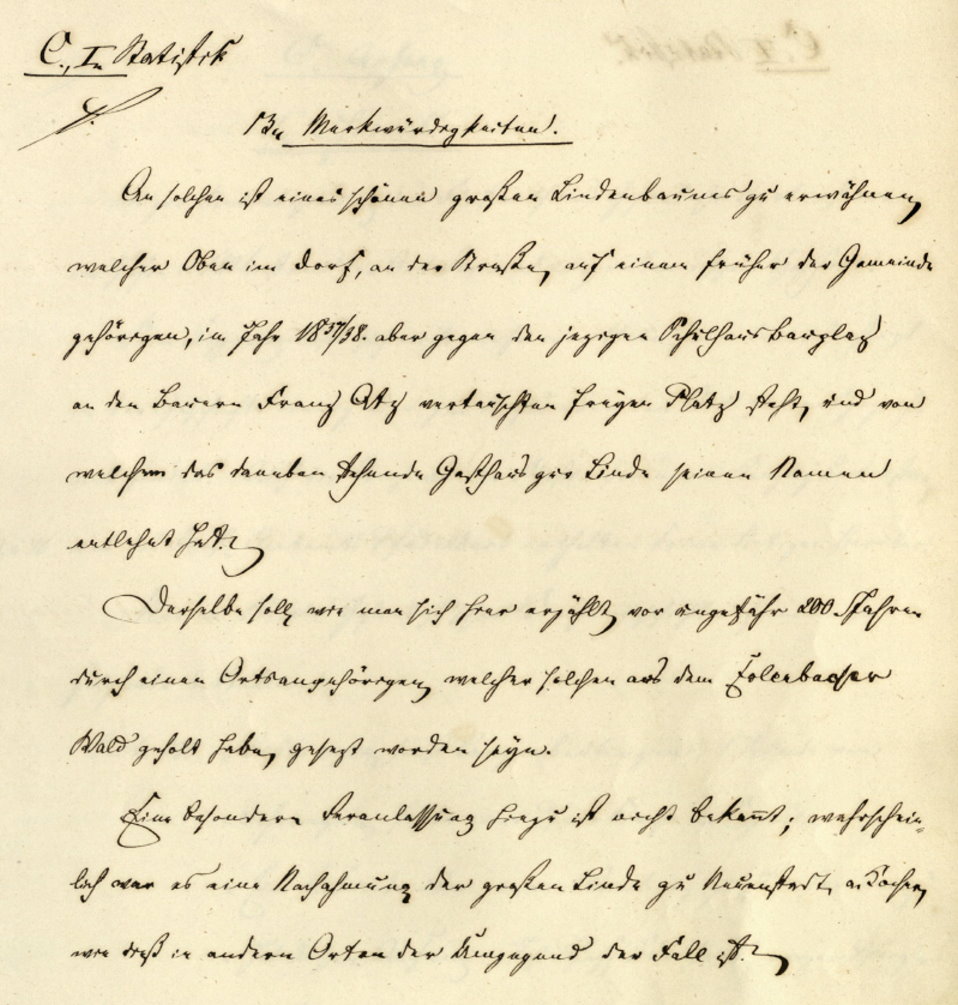 C., I. Statistik
13. Merkwürdigkeiten.
An solchen ist eines schönen großen Lindenbaums zu erwähnen,
welcher Oben im Dorf, an der Straße, auf einem früher der Gemeinde
gehörigen, im Jahr 1837/38. aber gegen den jezigen Schulhausbauplaz
an den Bauern Franz vertauschten freyen Platz steht, und von
welchem das daneben stehende Gasthaus zur Linde seinen Namen
entlehnt hat.
Derselbe soll, wie man sich hier erzählt, vor ungefähr 200 Jahren
durch einen Ortsangehörigen, welcher solchen aus dem
Wald geholt habe, gesezt worden seyn.
Eine besondere Veranlassung hiezu ist nicht bekannt; wahrschein-
lich war es eine Nachahmung der großen Linde zu Neuenstadt, a. Kocher,
wie dieß in andern Orten der Umgegend der Fall ist.